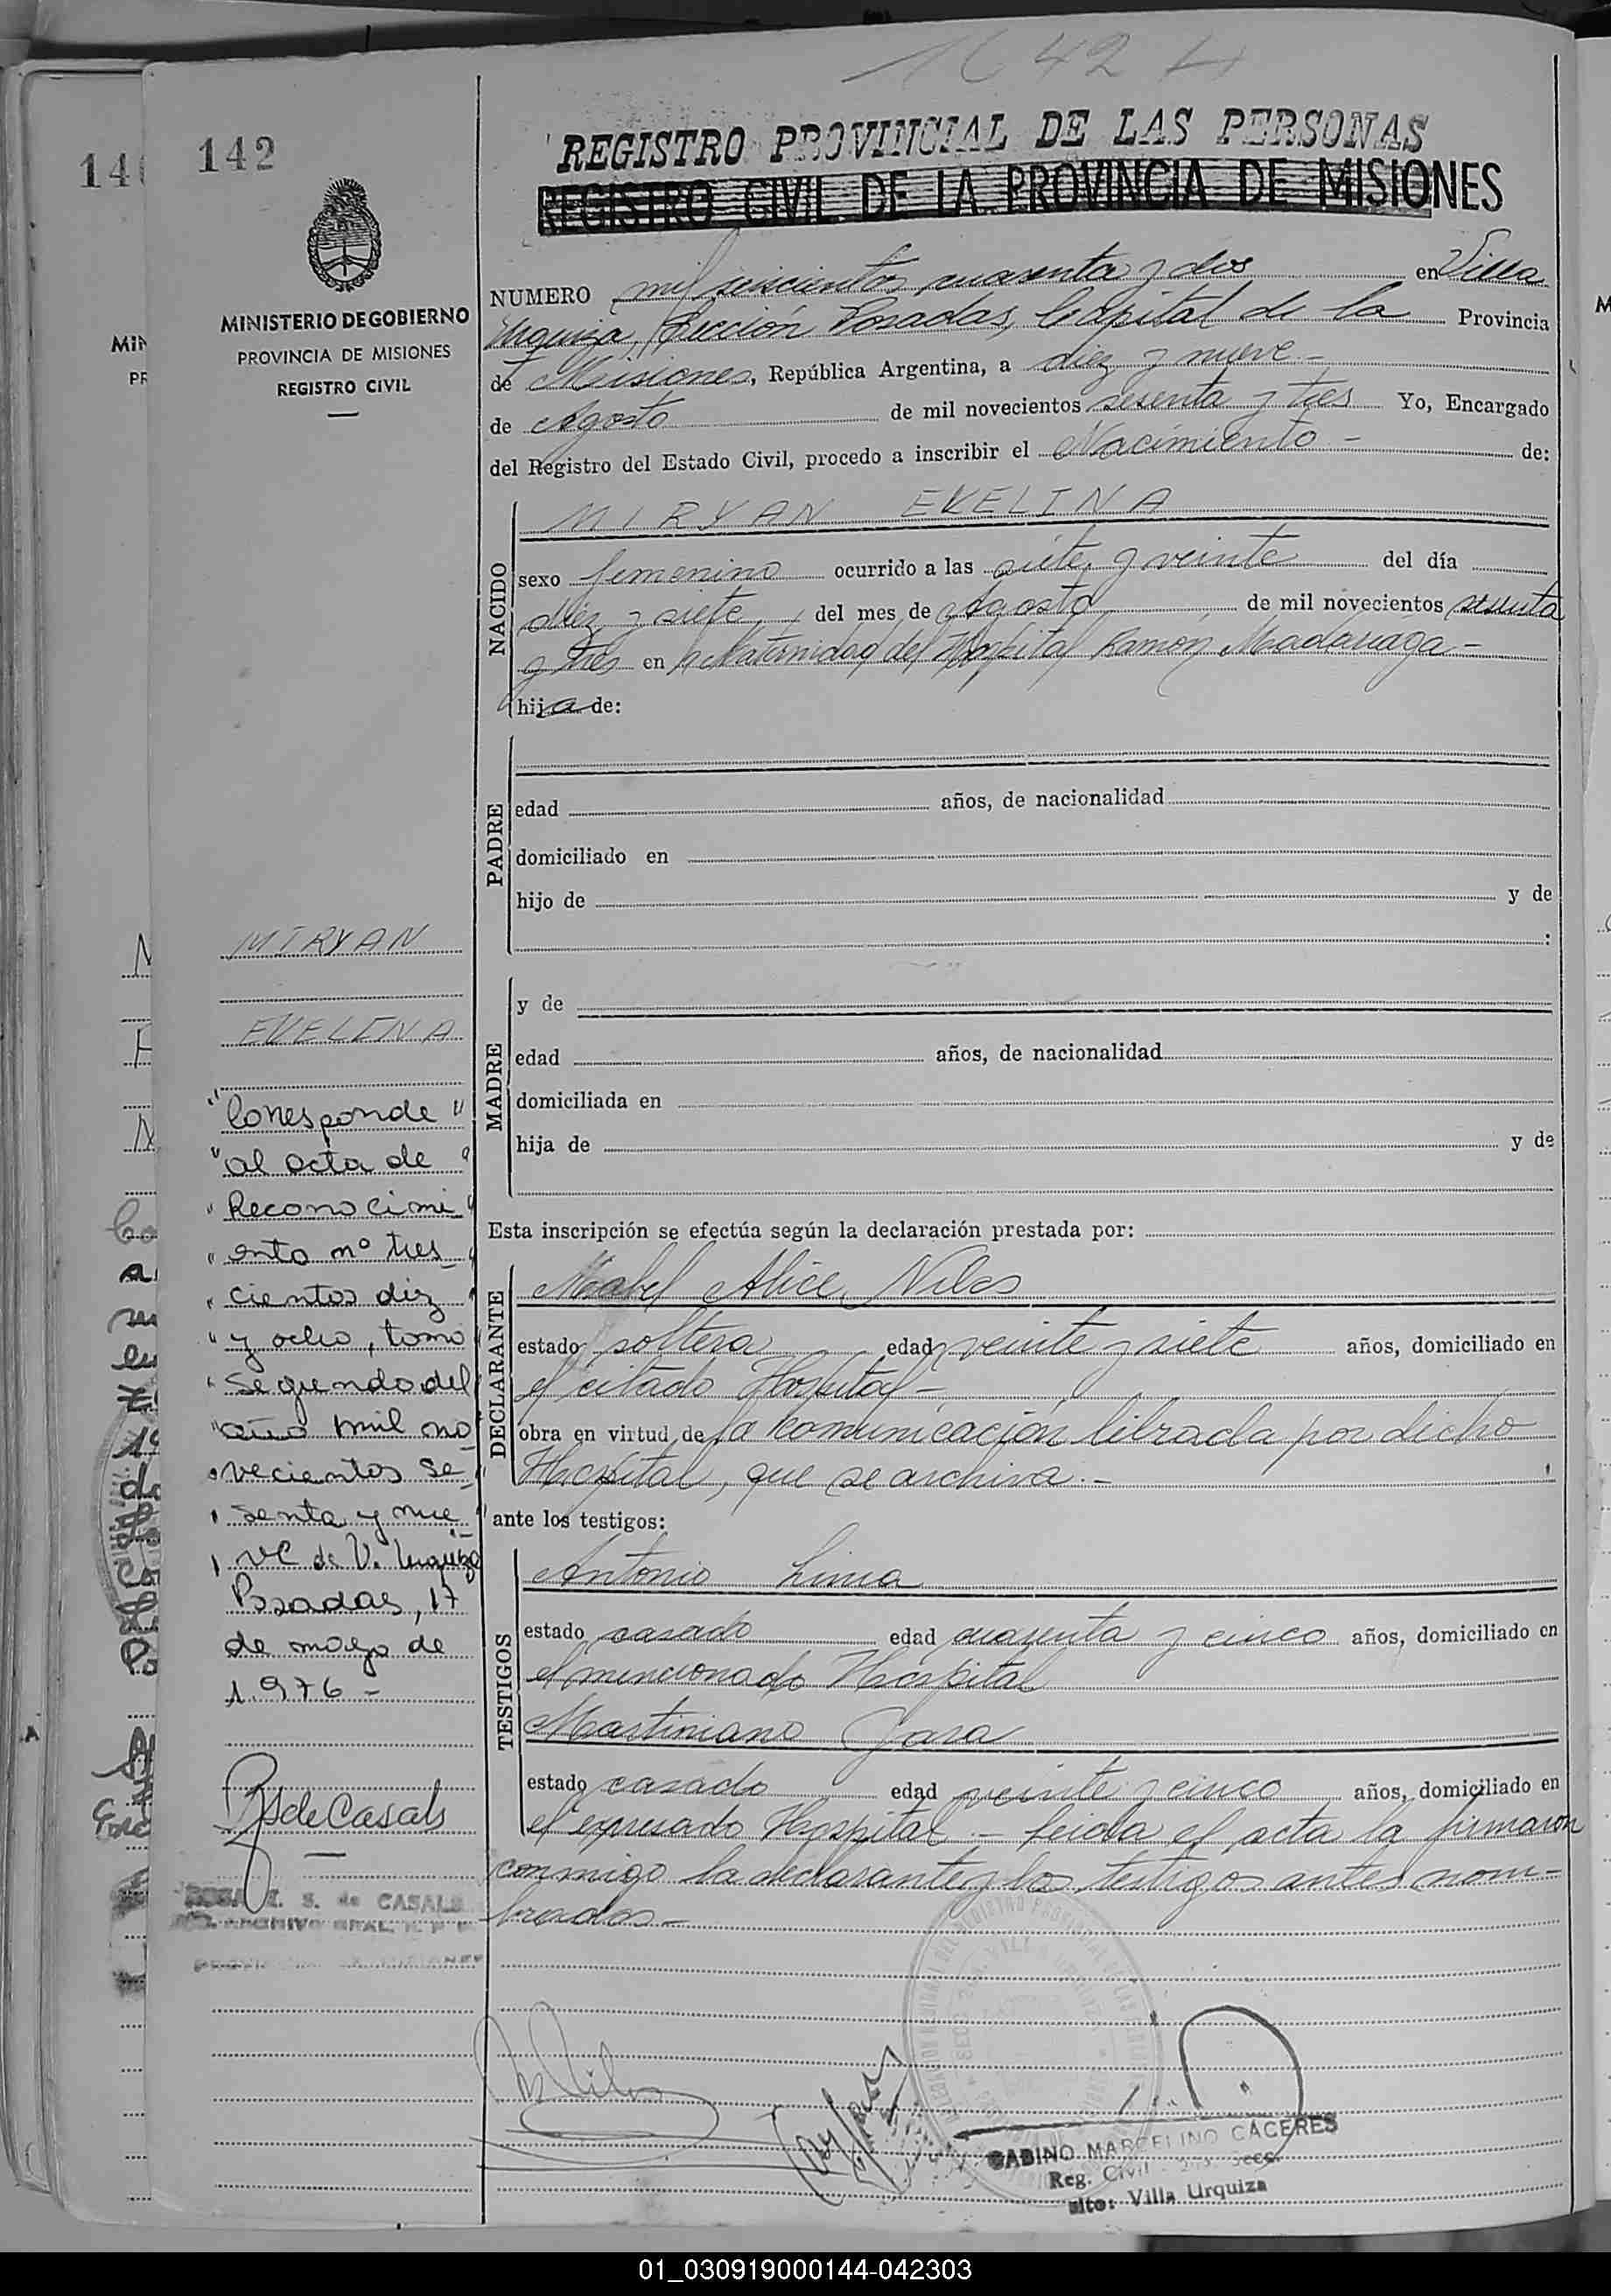 1642
142
REGISTRO PROVINCIAL DE LAS PERSONAS
REGISTRO CIVIL DE LA PROVINCIA DE MISIONES
MINISTERIO DE GOBIERNO
PROVINCIA DE MISIONES
REGISTRO CIVIL
NUMERO mil seiscientos cuarenta y dos en Villa
Urquiza, Sección Posadas, Capital de la Provincia
de Misiones, República Argentina, a diez y nueve -
de Agosto de mil novecientos sesenta y tres Yo, Encargado
del Registro del Estado Civil, procedo a inscribir el Nacimiento - de:
NACIDO
MIRYAN EVELINA
sexo femenino ocurrido a las siete y veinte del día
diez y siete, del mes de Agosto de mil novecientos sesenta
y tres en la Maternidad del Hospital Ramon Madariaga -
hija de:
PADRE
edad años, de nacionalidad
domiciliado en
hijo de y de
:
MADRE
y de
edad años, de nacionalidad
domiciliada en
hija de y de
Esta inscripción se efectúa según la declaración prestada por:
DECLARANTE
Mabel Alice Niles
estado soltera edad veinte y siete años, domiciliado en
el citado Hospital -
obra en virtud de la comunicación librada por dicho
Hospital, que se archiva. -
ante los testigos:
TESTIGOS
Antonio Lima
estado casado edad cuarenta y cinco años, domiciliado en
el mencionado Hospital
Martiniano Jara
estado casado edad veinte y cinco años, domiciliado en
el expresado Hospital - Leida el acta la firmaron
conmigo la declarante y los testigos antes nom-
brados -
MIRYAN
EVELINA
"Corresponde"
"al acta de"
"Reconocimi"
"ento nº tres
"cientos diez
"y ocho, tomo
"Segundo del
"año mil no
"vecientos se
"senta y nue
"ve de V. Urquiza
Posadas, 17
de mayo de
1.976 -
RSdeCasals
ROSA E. S. de CASALS
ARCHIVO GRAL.
GABINO MARCELINO CACERES
Reg. Civil
Villa Urquiza
01_030919000144-042303